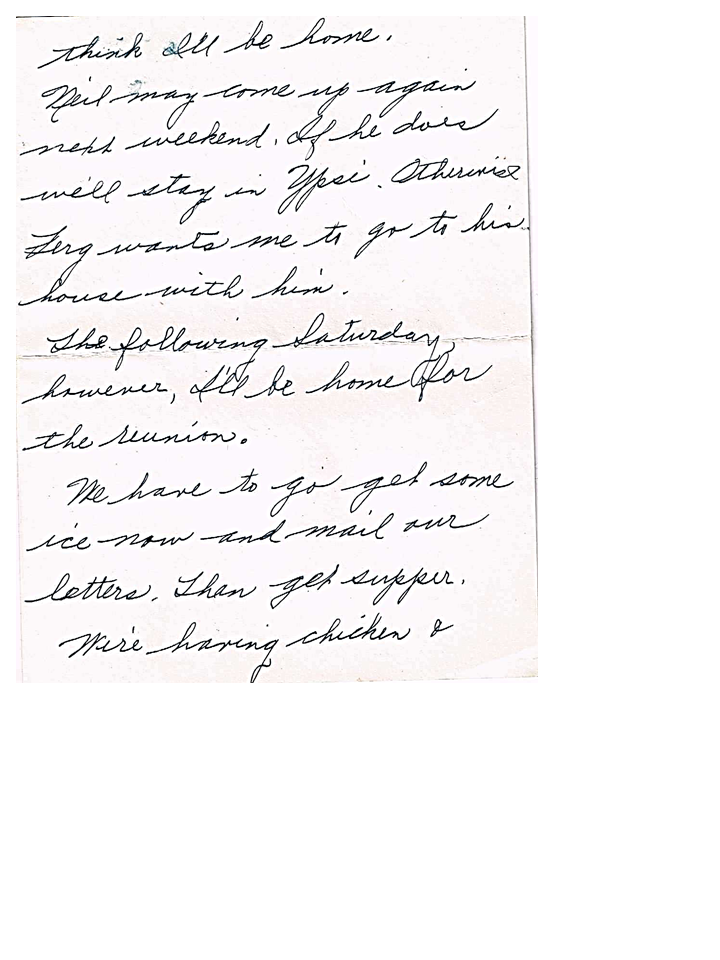 think I'll be home.
Neil may come up again
next weekend. If he does
we'll stay in Ypsi. Otherwise
Ferg wants me to go to his
house with him.
The following Saturday,
however, I'll be home for
the reunion.
We have to go get some
ice now and mail our
letters. Than get supper.
We're having chicken &